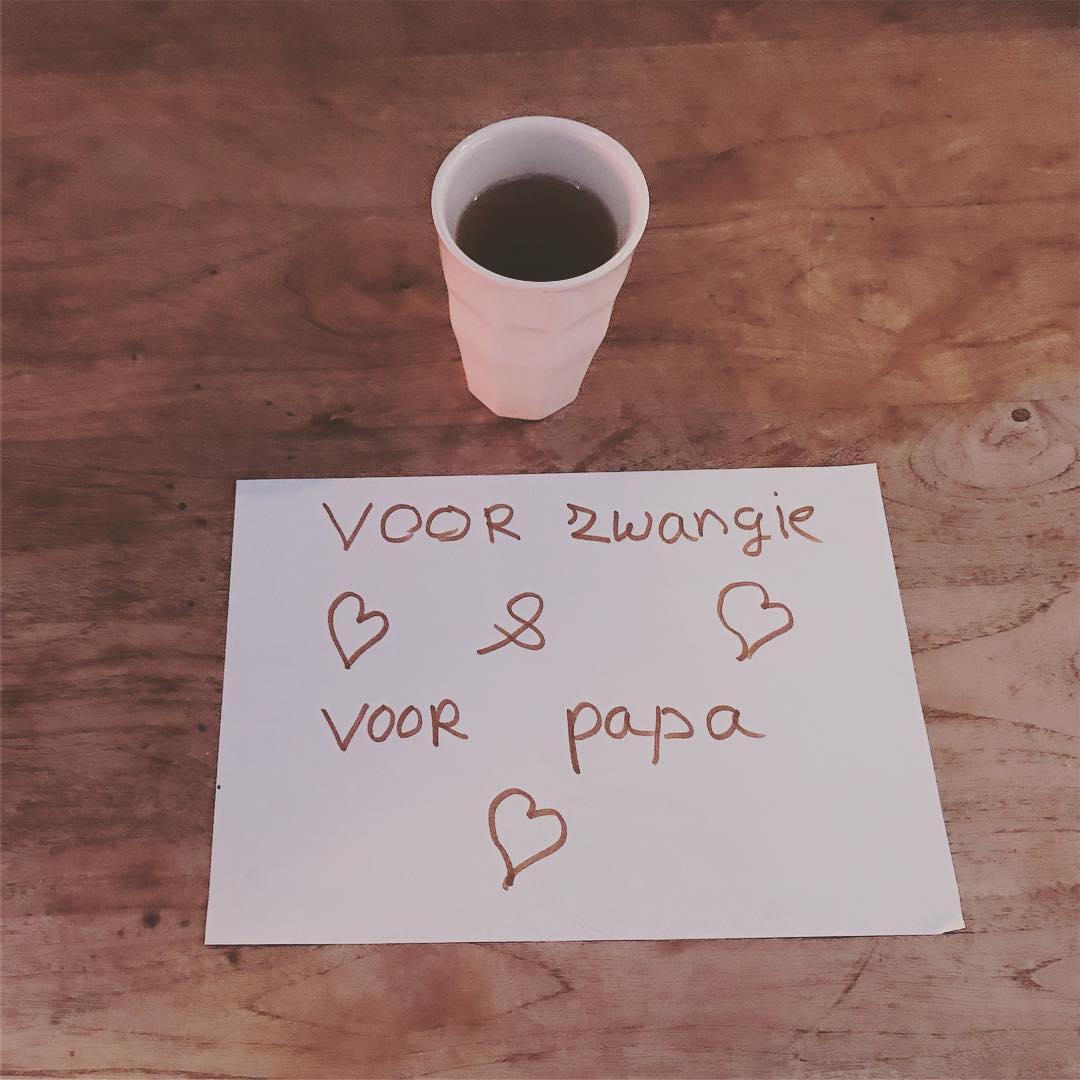 VOOR zwangie
♡ & ♡
VOOR papa
♡